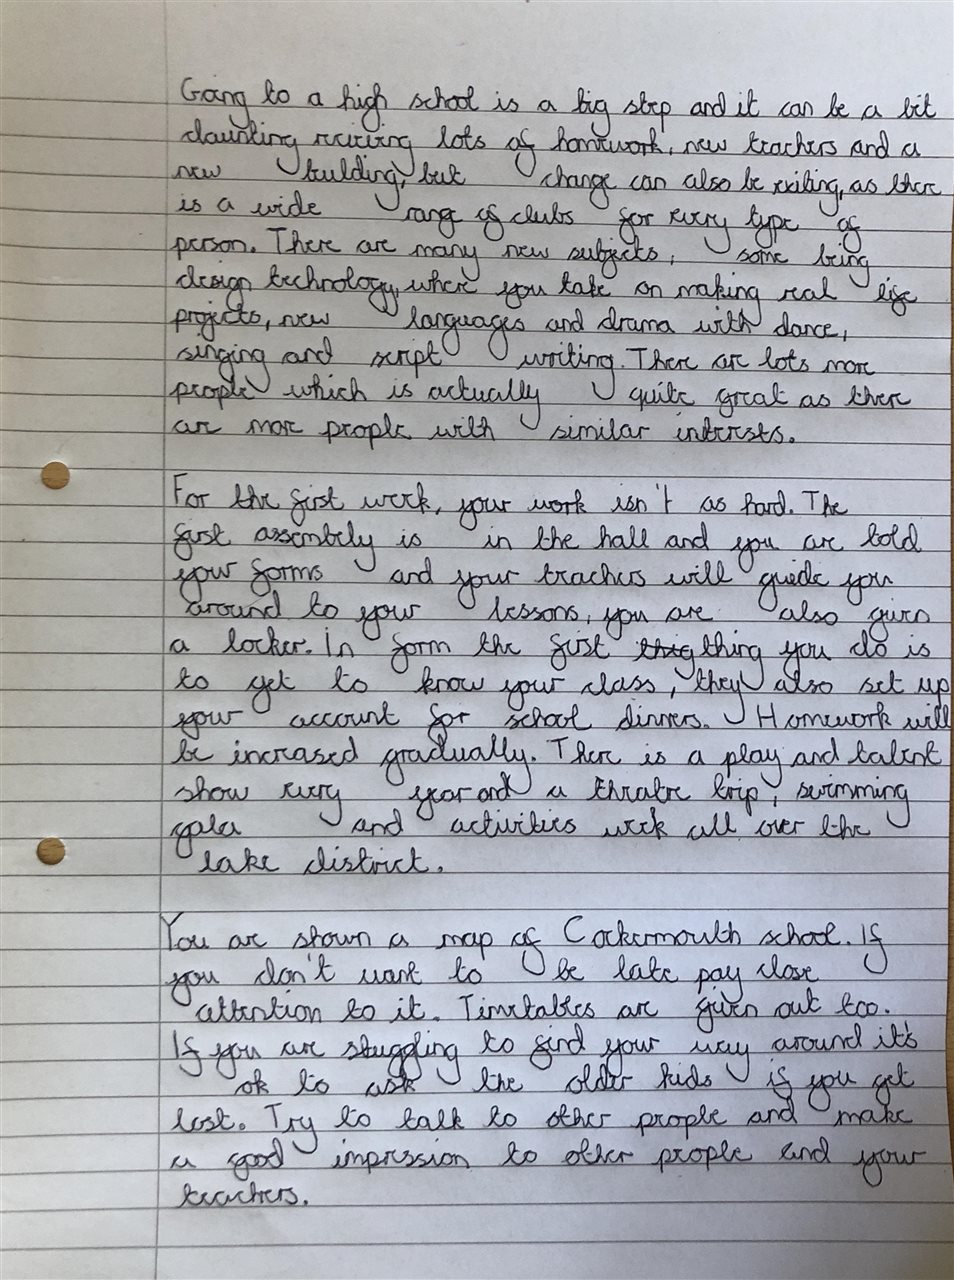 Going to a high school is a big step and it can be a bit
daunting reciving lots of homework, new teachers and a
new building, but change can also be exiting, as there
is a wide range of clubs for every type of
person. There are many new subjects, some being
design technology, where you take on making real life
projects, new languages and drama with dance,
singing and script writing. There are lots more
people which is actually quite great as there
are more people with similar interests.
For the first week, your work isn't as hard. The
first assembely is in the hall and you are told
your forms and your teachers will guide you
around to your lessons, you are also given
a locker. In form the first thing you do is
to get to know your class, they also set up
your account for school dinners. Homework will
be increased gradually. There is a play and talent
show every year and a theatre trip, swimming
gala and activities week all over the
lake district.
You are shown a map of Cockermouth school. If
you don't want to be late pay close
attention to it. Timetables are given out too.
If you are stuggling to find your way around it's
ok to ask the older kids if you get
lost. Try to talk to other people and make
a good impression to other people and your
teachers.